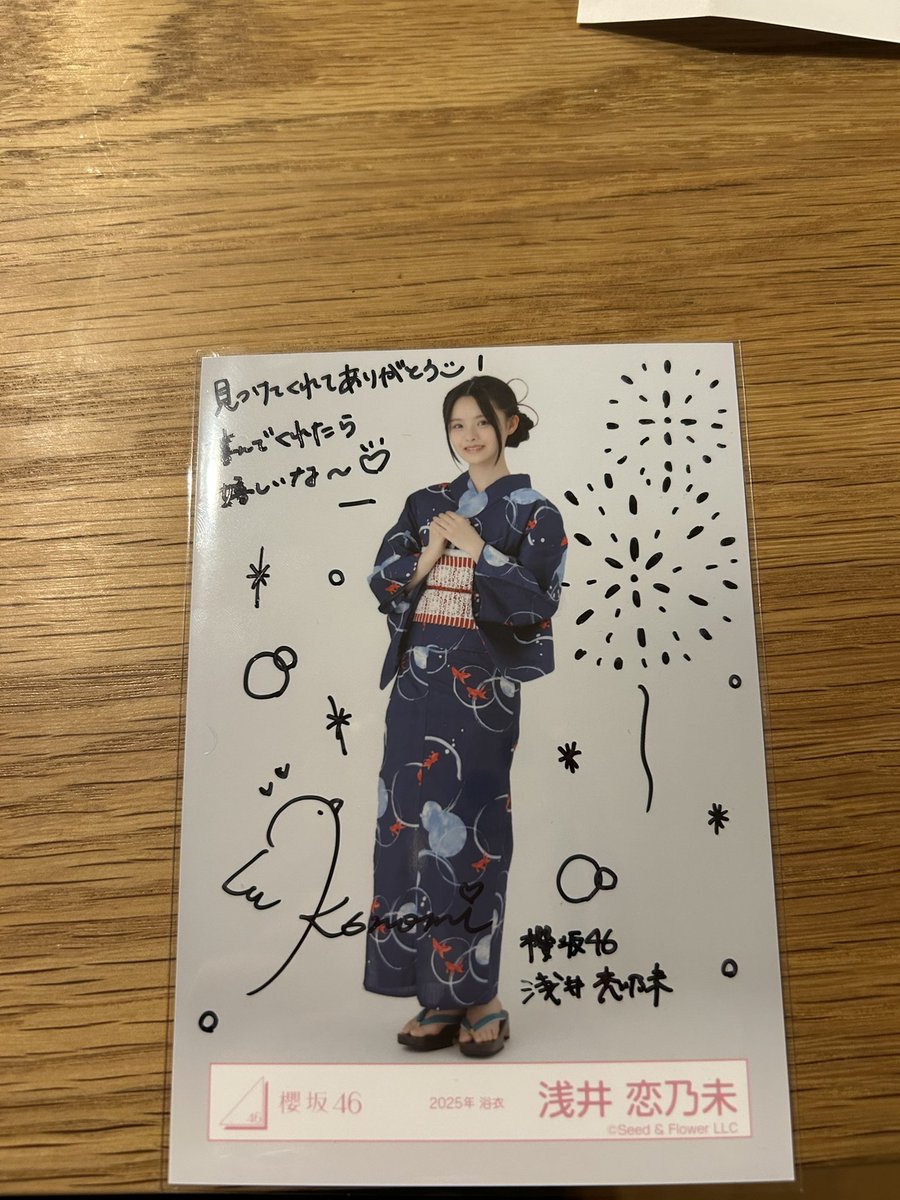 見つけてくれてありがとう!
よんでくれたら
嬉しいな〜
Konomi
櫻坂46
浅井 恋乃未
46
櫻坂46
2025年 浴衣
浅井 恋乃未
©Seed & Flower LLC